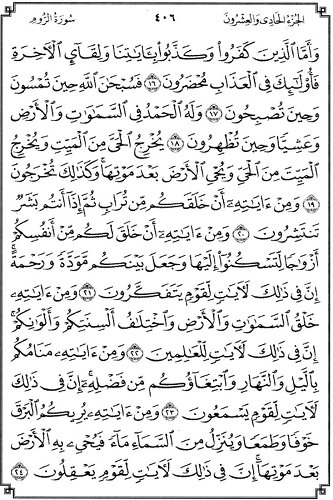 سُورَةُ الرُّومِ ٤٠٦ الجُزْءُ الحَادِي وَالعِشْرُونَ
وَأَمَّا الَّذِينَ كَفَرُوا وَكَذَّبُوا بِـَٔايَـٰتِنَا وَلِقَآئِ الْأَخِرَةِ
فَأُولَـٰٓئِكَ فِي الْعَذَابِ مُحْضَرُونَ ١٦ فَسُبْحَـٰنَ اللَّهِ حِينَ تُمْسُونَ
وَحِينَ تُصْبِحُونَ ١٧ وَلَهُ الْحَمْدُ فِي السَّمَـٰوَٰتِ وَالْأَرْضِ
وَعَشِيًّا وَحِينَ تُظْهِرُونَ ١٨ يُخْرِجُ الْحَيَّ مِنَ الْمَيِّتِ وَيُخْرِجُ
الْمَيِّتَ مِنَ الْحَيِّ وَيُحْيِ الْأَرْضَ بَعْدَ مَوْتِهَا ۚ وَكَذَٰلِكَ تُخْرَجُونَ
١٩ وَمِنْ ءَايَـٰتِهِۦٓ أَنْ خَلَقَكُم مِّن تُرَابٍ ثُمَّ إِذَآ أَنتُم بَشَرٌ
تَنتَشِرُونَ ٢٠ وَمِنْ ءَايَـٰتِهِۦٓ أَنْ خَلَقَ لَكُم مِّنْ أَنفُسِكُمْ
أَزْوَٰجًا لِّتَسْكُنُوٓا إِلَيْهَا وَجَعَلَ بَيْنَكُم مَّوَدَّةً وَرَحْمَةً ۚ
إِنَّ فِي ذَٰلِكَ لَأَيَـٰتٍ لِّقَوْمٍ يَتَفَكَّرُونَ ٢١ وَمِنْ ءَايَـٰتِهِۦ
خَلْقُ السَّمَـٰوَٰتِ وَالْأَرْضِ وَاخْتِلَـٰفُ أَلْسِنَتِكُمْ وَأَلْوَٰنِكُمْ ۚ
إِنَّ فِي ذَٰلِكَ لَأَيَـٰتٍ لِّلْعَـٰلِمِينَ ٢٢ وَمِنْ ءَايَـٰتِهِۦ مَنَامُكُم
بِالَّيْلِ وَالنَّهَارِ وَابْتِغَآؤُكُم مِّن فَضْلِهِۦٓ ۚ إِنَّ فِي ذَٰلِكَ
لَأَيَـٰتٍ لِّقَوْمٍ يَسْمَعُونَ ٢٣ وَمِنْ ءَايَـٰتِهِۦ يُرِيكُمُ الْبَرْقَ
خَوْفًا وَطَمَعًا وَيُنَزِّلُ مِنَ السَّمَآءِ مَآءً فَيُحْيِۦ بِهِ الْأَرْضَ
بَعْدَ مَوْتِهَآ ۚ إِنَّ فِي ذَٰلِكَ لَأَيَـٰتٍ لِّقَوْمٍ يَعْقِلُونَ ٢٤